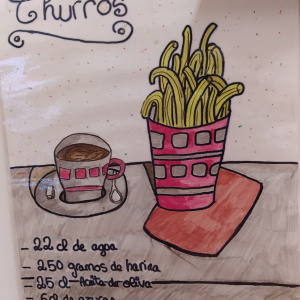 Churros
- 22 cl de agua
- 250 gramos de harina
- 25 cl - Aceite de oliva
- 6cl de azucar